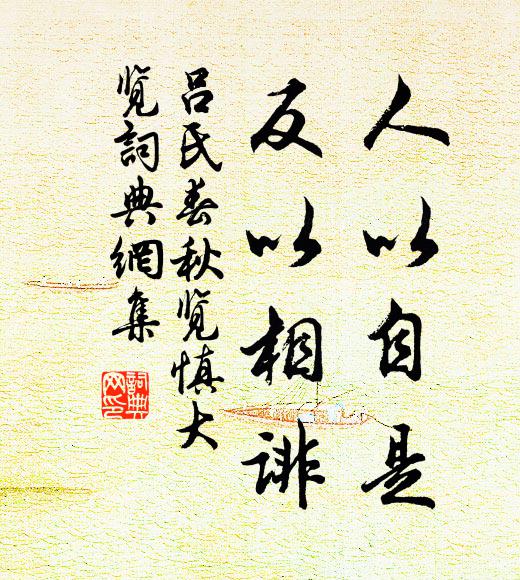 人以自是
反以相誹
吕氏春秋覽慎大
覽詞典網集
詞典
网印